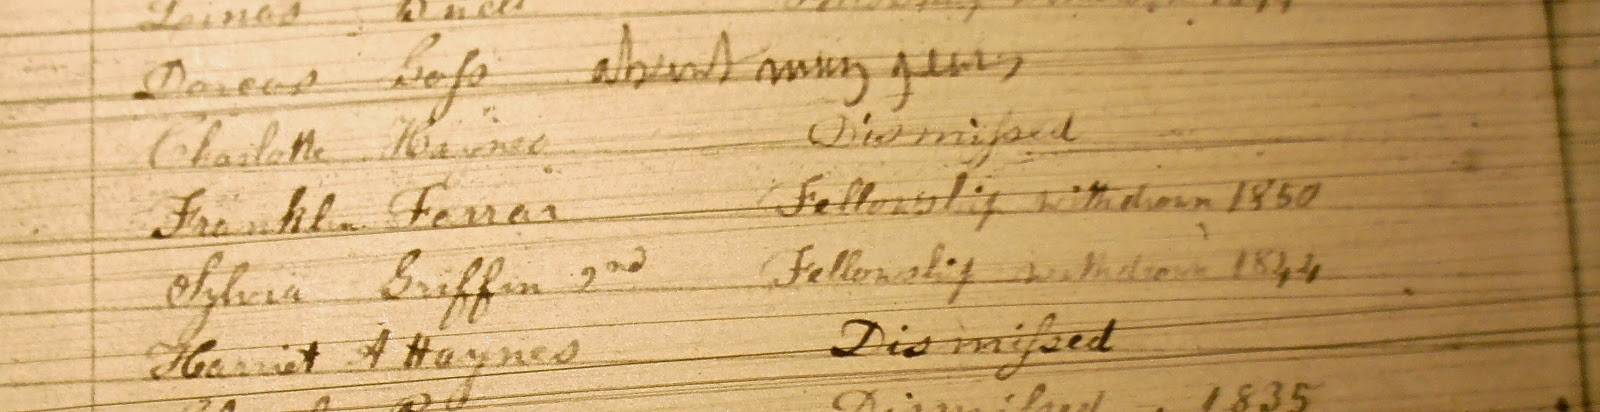 Dorcas Goss absent many years
Charlotte Haynes Dismissed
Franklin Farrar Fellowship withdrawn 1850
Sylvia Griffin 2nd Fellowship withdrawn 1844
Harriet A Haynes Dismissed
Dismissed 1835